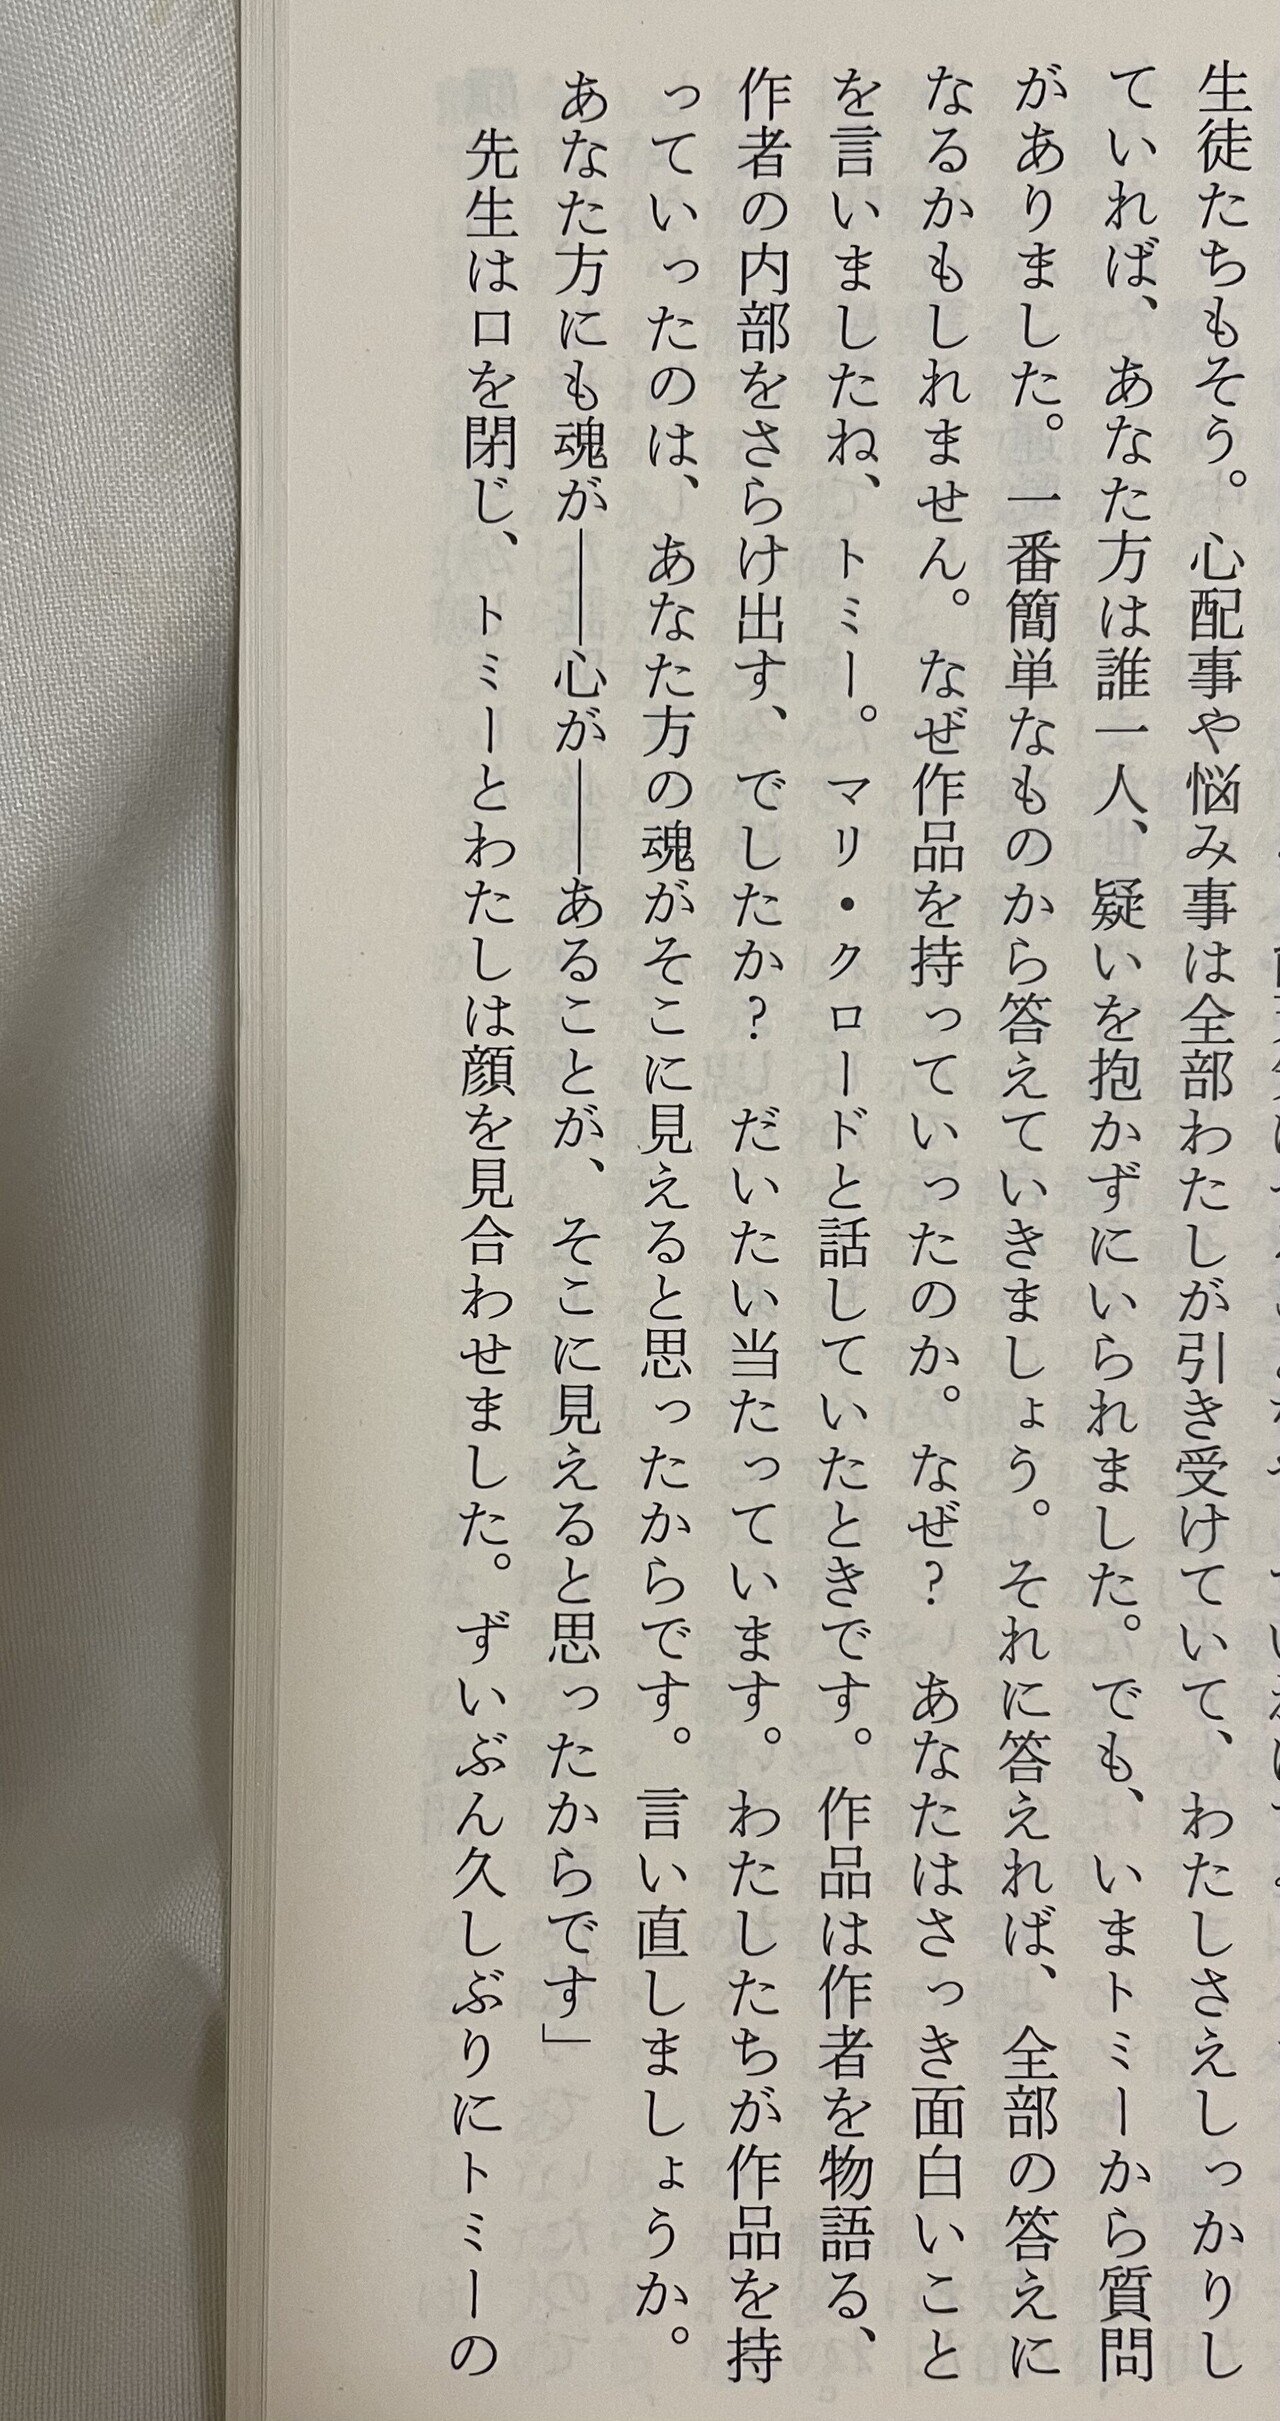 生徒たちもそう。心配事や悩み事は全部わたしが引き受けていて、わたしさえしっかりし
ていれば、あなた方は誰一人、疑いを抱かずにいられました。でも、いまトミーから質問
がありました。一番簡単なものから答えていきましょう。それに答えれば、全部の答えに
なるかもしれません。なぜ作品を持っていったのか。なぜ? あなたはさっき面白いこと
を言いましたね、トミー。マリ・クロードと話していたときです。作品は作者を物語る、
作者の内部をさらけ出す、でしたか? だいたい当たっています。わたしたちが作品を持
っていったのは、あなた方の魂がそこに見えると思ったからです。言い直しましょうか。
あなた方にも魂が――心が――あることが、そこに見えると思ったからです」
先生は口を閉じ、トミーとわたしは顔を見合わせました。ずいぶん久しぶりにトミーの